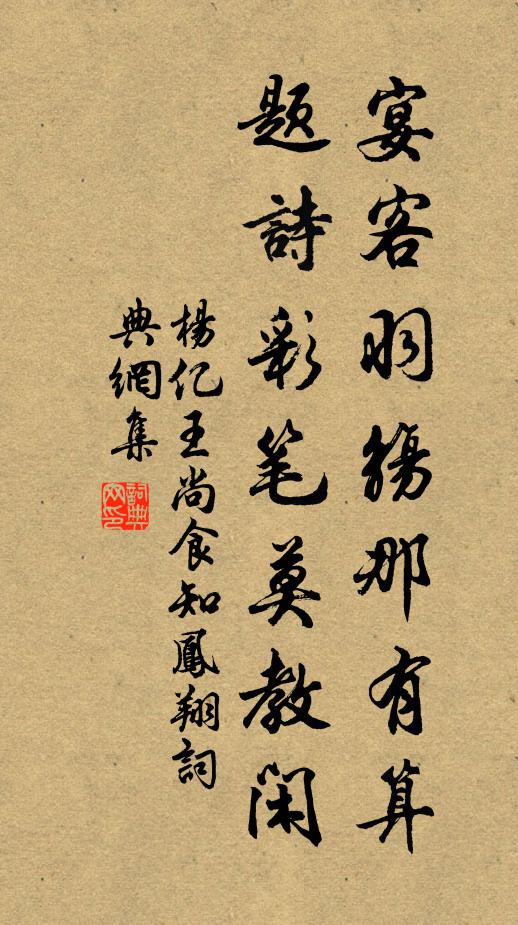 宴客羽觴那有算
题詩彩笔莫教閑
楊亿王尚食知鳳翔詞
典網集
詞典
网印